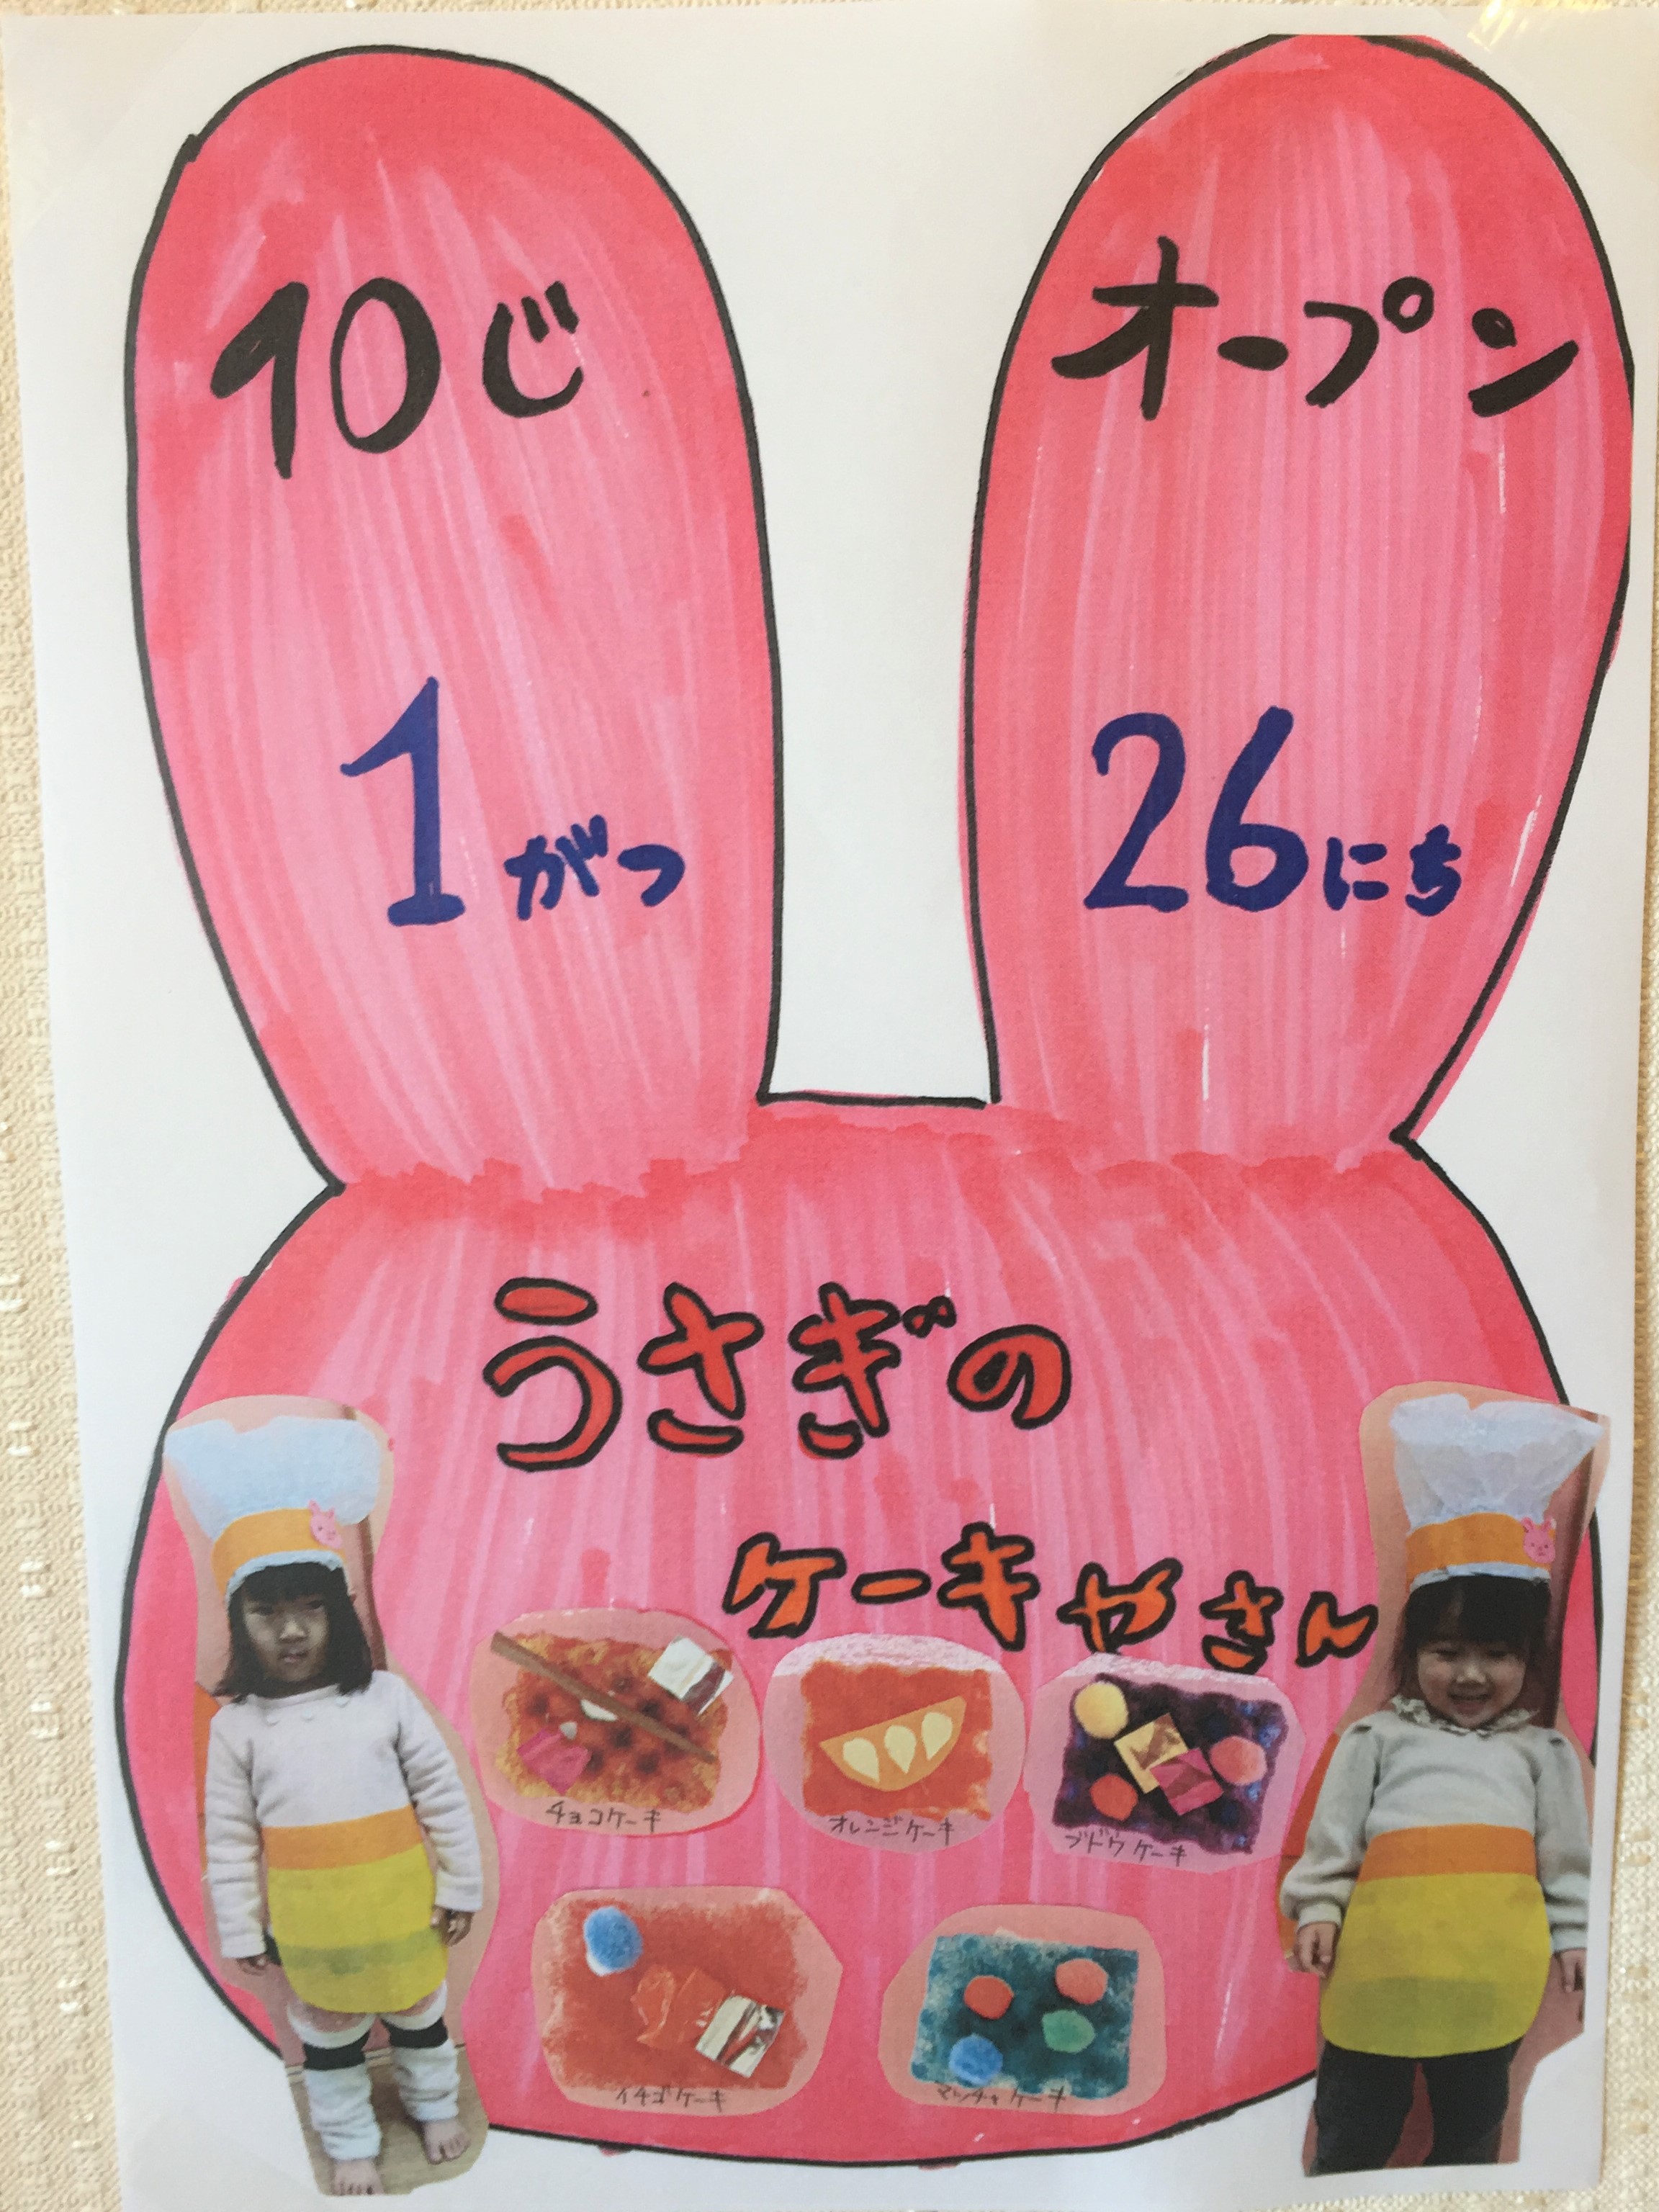 10じ
オープン
1がつ
26にち
うさぎの
ケーキやさん
チョコケーキ
オレンジケーキ
ブドウケーキ
イチゴケーキ
マッチャケーキ